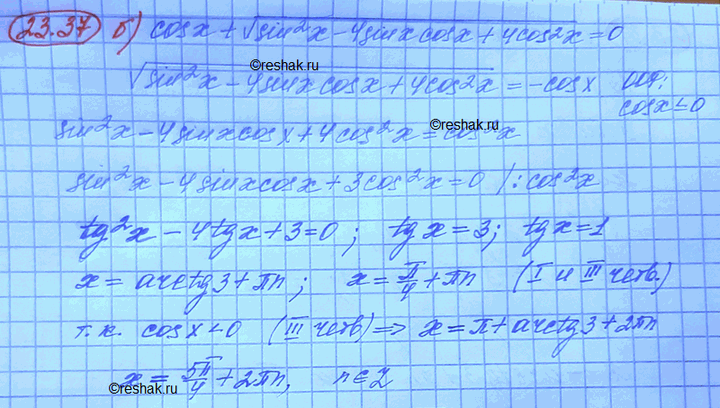 23.37 б) cosx + √sin²x - 4sinxcosx + 4cos²x = 0
©reshak.ru
√sin²x - 4sinxcosx + 4cos²x = -cosx ООР:
cosx ≤ 0
sin²x - 4sinxcosx + 4cos²x = cos²x
©reshak.ru
sin²x - 4sinxcosx + 3cos²x = 0 /: cos²x
tg²x - 4tgx + 3 = 0; tgx = 3; tgx = 1
x = arctg3 + πn; x = π/4 + πn (I и III четв.)
т.к. cosx < 0 (III четв) => x = π + arctg3 + 2πn
x = 5π/4 + 2πn, n ∈ Z
©reshak.ru